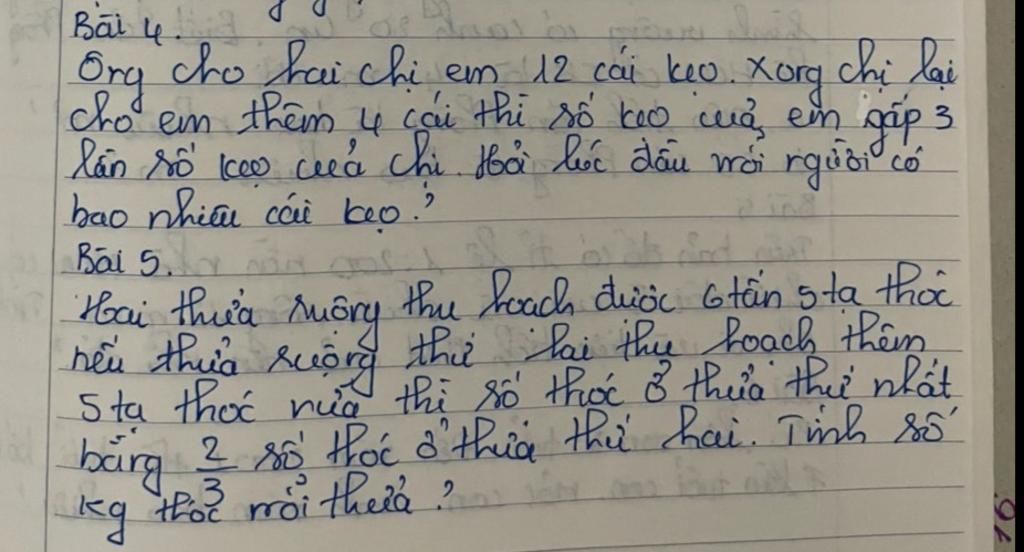 Bài 4.
Ông cho hai chị em 12 cái kẹo. Xong chị lại
cho em thêm 4 cái thì số kẹo của em gấp 3
lần số kẹo của chị. Hỏi lúc đầu mỗi người có
bao nhiêu cái kẹo?
Bài 5.
Hai thửa ruộng thu hoạch được 6 tấn 5 tạ thóc
nếu thửa ruộng thứ hai thu hoạch thêm
5 tạ thóc nữa thì số thóc ở thửa thứ nhất
bằng 2/3 số thóc ở thửa thứ hai. Tính số
kg thóc mỗi thửa?